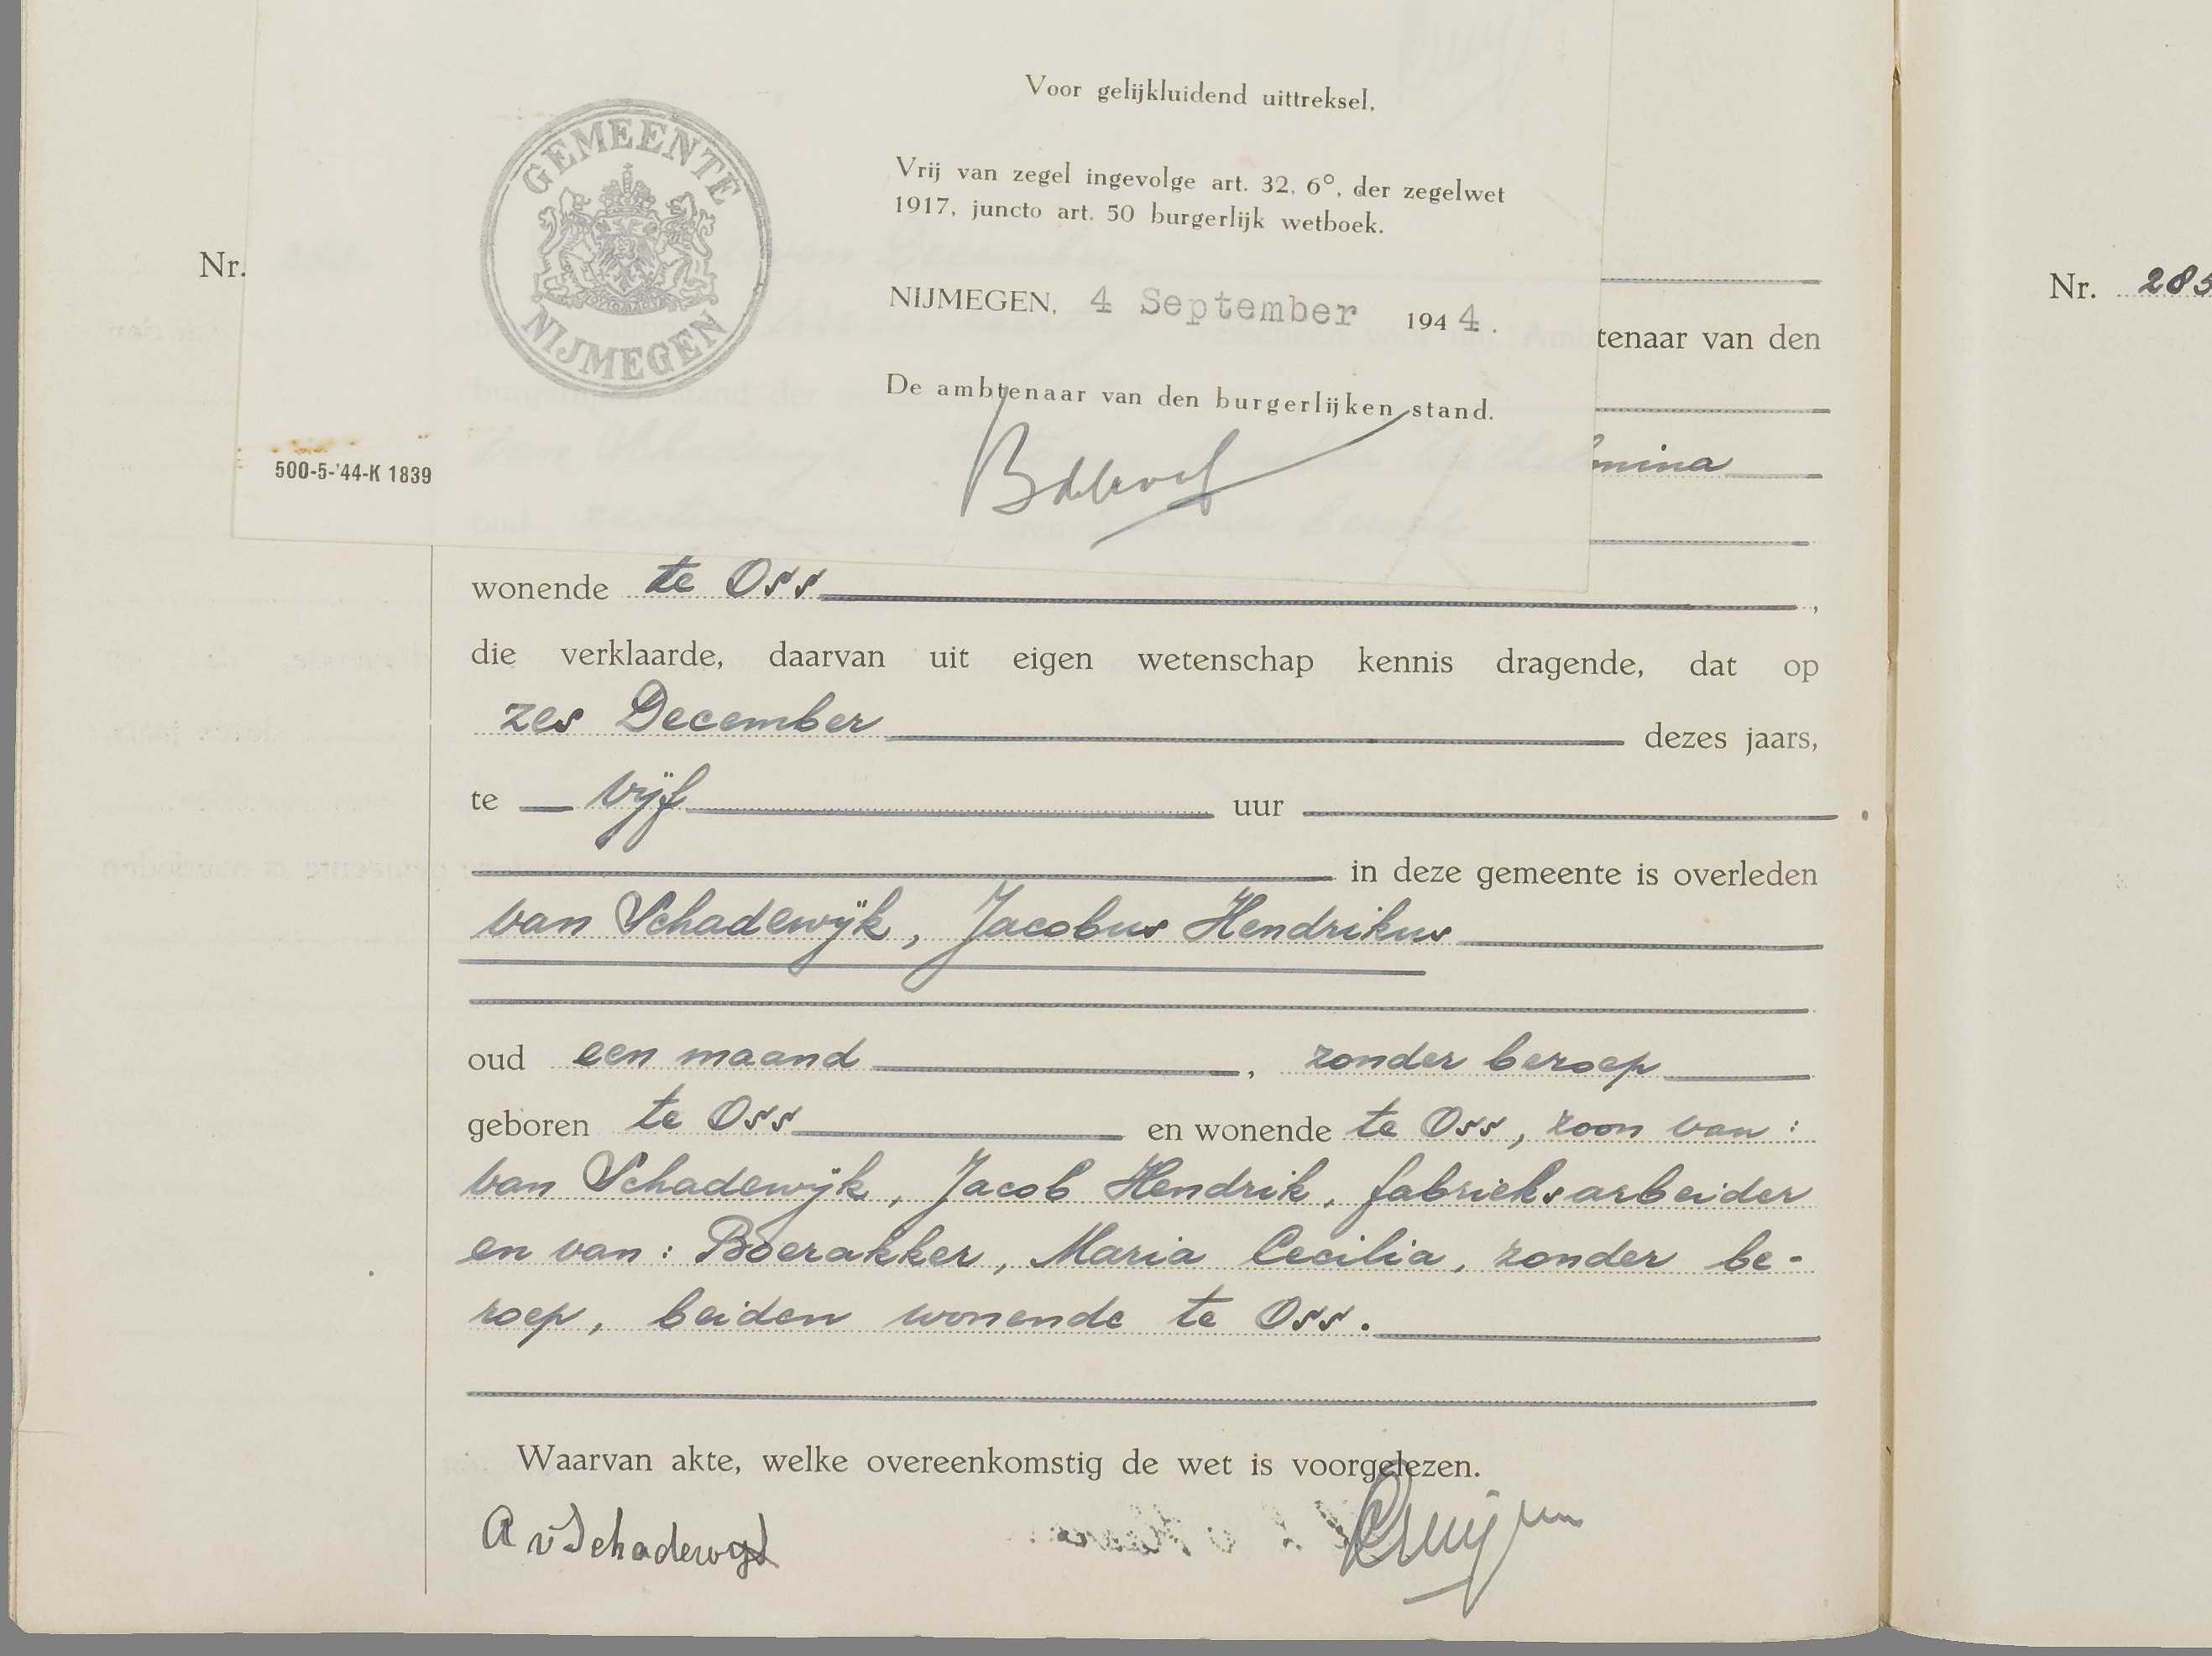 Voor gelijkluidend uittreksel.
GEMEENTE
NIJMEGEN
Vrij van zegel ingevolge art. 32, 6°, der zegelwet
1917, juncto art. 50 burgerlijk wetboek.
NIJMEGEN, 4 September 1944.
De ambtenaar van den burgerlijken stand.
500-5-'44-K 1839
Nr.
tenaar van den
mina
wonende te Oss,
die verklaarde, daarvan uit eigen wetenschap kennis dragende, dat op
zes December dezes jaars,
te vijf uur
in deze gemeente is overleden
van Schadewijk, Jacobus Hendrikus
oud een maand, zonder beroep
geboren te Oss en wonende te Oss, zoon van:
van Schadewijk, Jacob Hendrik, fabrieksarbeider
en van: Boerakker, Maria Cecilia, zonder be-
roep, beiden wonende te Oss.
Waarvan akte, welke overeenkomstig de wet is voorgelezen.
A v Schadewyk
Nr. 285